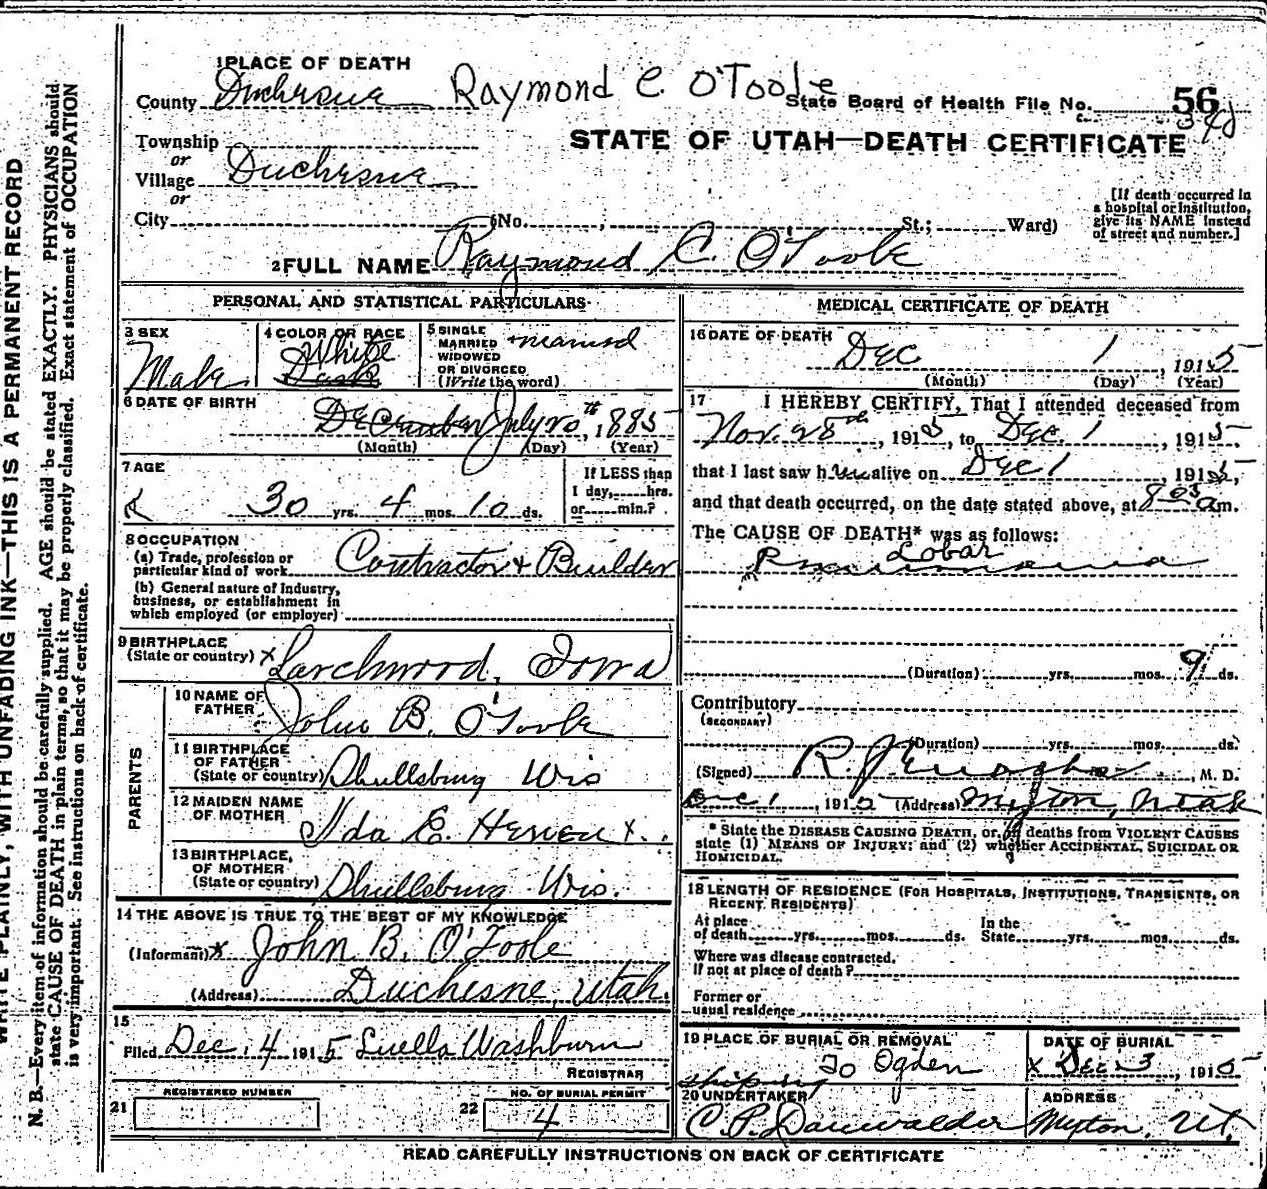 WRITE PLAINLY, WITH UNFADING INK—THIS IS A PERMANENT RECORD
N. B.—Every item of information should be carefully supplied. AGE should be stated EXACTLY. PHYSICIANS should
state CAUSE OF DEATH in plain terms, so that it may be properly classified. Exact statement of OCCUPATION
is very important. See instructions on back of certificate.
1 PLACE OF DEATH
County Duchesne Raymond C. O'Toole State Board of Health File No. 56
STATE OF UTAH—DEATH CERTIFICATE
Township
or
Village Duchesne
or
City (No. , St.; Ward)
[If death occurred in
a hospital or institution,
give its NAME instead
of street and number.]
2 FULL NAME Raymond C. O'Toole
PERSONAL AND STATISTICAL PARTICULARS
3 SEX
Male
4 COLOR OR RACE
White
5 SINGLE
MARRIED
WIDOWED
OR DIVORCED
(Write the word)
married
6 DATE OF BIRTH
December July 20th, 1885
(Month) (Day) (Year)
7 AGE
30 yrs. 4 mos. 10 ds.
If LESS than
1 day, hrs.
or min.?
8 OCCUPATION
(a) Trade, profession or
particular kind of work Contractor & Builder
(b) General nature of industry,
business, or establishment in
which employed (or employer)
9 BIRTHPLACE
(State or country) x Larchwood, Iowa
PARENTS
10 NAME OF
FATHER John B. O'Toole
11 BIRTHPLACE
OF FATHER
(State or country) Shullsburg Wis
12 MAIDEN NAME
OF MOTHER Ida E. x
13 BIRTHPLACE
OF MOTHER
(State or country) Shullsburg Wis.
14 THE ABOVE IS TRUE TO THE BEST OF MY KNOWLEDGE
(Informant) x John B. O'Toole
(Address) Duchesne, Utah.
15
Filed Dec. 4 1915 Luella Washburn
REGISTRAR
21 REGISTERED NUMBER
22 NO. OF BURIAL PERMIT
4
MEDICAL CERTIFICATE OF DEATH
16 DATE OF DEATH
Dec 1, 1915
(Month) (Day) (Year)
17 I HEREBY CERTIFY, That I attended deceased from
Nov. 28th, 1915, to Dec. 1, 1915
that I last saw him alive on Dec 1 1915,
and that death occurred, on the date stated above, at 8:05 am.
The CAUSE OF DEATH* was as follows:
Lobar
Pneumonia
(Duration) yrs. mos. 9 ds.
Contributory
(SECONDARY)
(Duration) yrs. mos. ds.
(Signed) R. J. , M. D.
Dec 1, 1915 (Address) Myton, Utah
* State the DISEASE CAUSING DEATH, or, in deaths from VIOLENT CAUSES
state (1) MEANS OF INJURY; and (2) whether ACCIDENTAL, SUICIDAL OR
HOMICIDAL.
18 LENGTH OF RESIDENCE (FOR HOSPITALS, INSTITUTIONS, TRANSIENTS, OR
RECENT RESIDENTS)
At place
of death yrs. mos. ds.
In the
State yrs. mos. ds.
Where was disease contracted.
If not at place of death?
Former or
usual residence
19 PLACE OF BURIAL OR REMOVAL
To Ogden
DATE OF BURIAL
x Dec 3, 1915
20 UNDERTAKER
C. P. Danwalder
ADDRESS
Myton, Ut.
READ CAREFULLY INSTRUCTIONS ON BACK OF CERTIFICATE